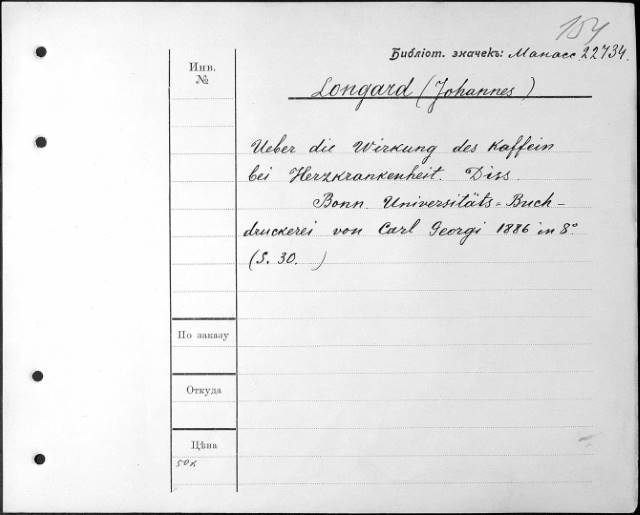 154
Библіот. значекъ: Манасс. 22734.
Инв.
№
Longard (Johannes)
Ueber die Wirkung des Kaffein
bei Herzkrankenheit. Diss.
Bonn. Universitäts-Buch-
druckerei von Carl Georgi 1886 in 8º
(S. 30. )
По заказу
Откуда
Цѣна
50к